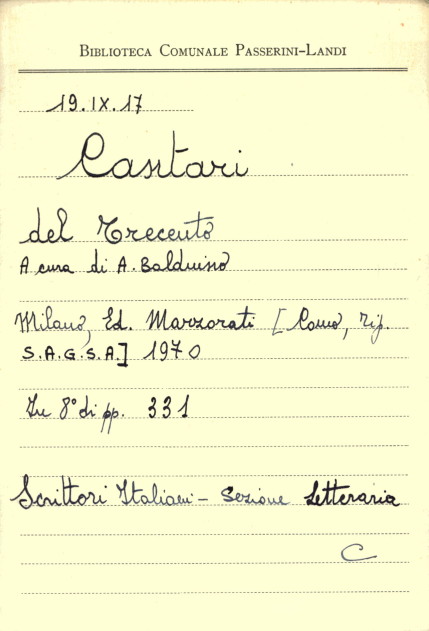 BIBLIOTECA COMUNALE PASSERINI-LANDI
19.IX.17
Cantari
del Trecento
A cura di A. Balduino
Milano, Ed. Marzorati [Como, Tip.
S.A.G.S.A.] 1970
In 8° di pp. 331
Scrittori Italiani - Sezione Letteraria
C